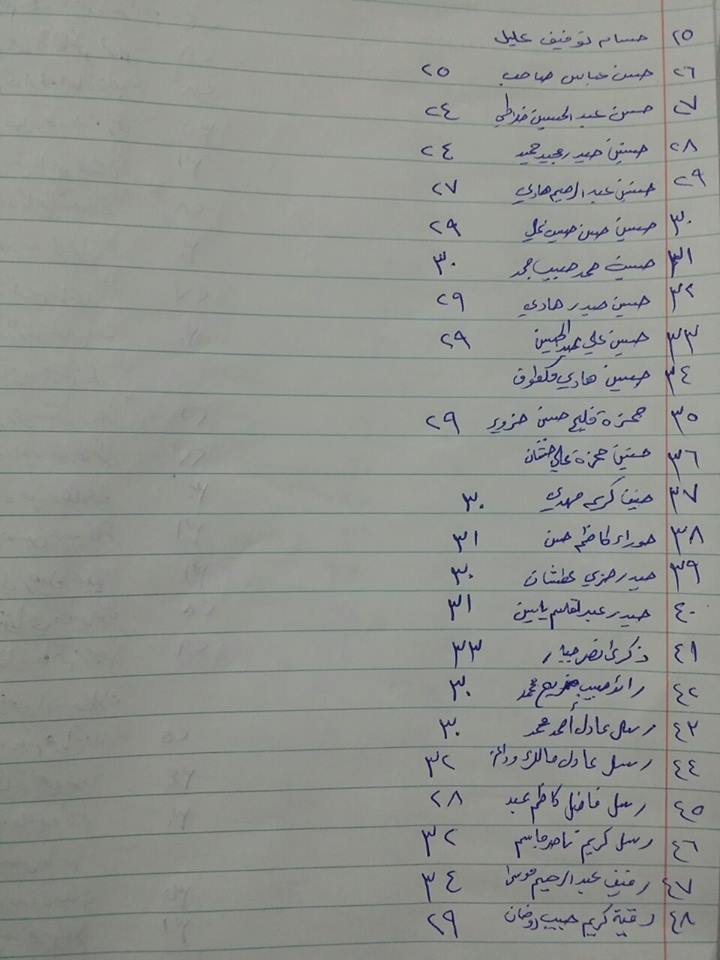 ٢٥ حسام توفيق عليل
٢٦ حسن عباس صاحب ٢٥
٢٧ حسن عبد الحسين ٢٤
٢٨ حسين حيدر مجيد حميد ٢٤
٢٩ حسنين عبد الرحيم هادي ٢٧
٣٠ حسين حسن حسين علي ٢٩
٣١ حسين حمد حبيب حمد ٣٠
٣٢ حسين حيدر هادي ٢٩
٣٣ حسين علي عبد الحسين ٢٩
٣٤ حسين هادي
٣٥ حمزة فليح حسن ٢٩
٣٦ حسنين حمزة علي
٣٧ حنين كريم مهدي ٣٠
٣٨ حوراء كاظم حسن ٣١
٣٩ حيدر حمزي عطشان ٣٠
٤٠ حيدر ياسين ٣١
٤١ ذكرى جبار ٣٣
٤٢ رائد حبيب محمد ٣٠
٤٣ رسل عادل أحمد محمد ٣٠
٤٤ رسل عادل مالك ٣٢
٤٥ رسل فاضل كاظم عبد ٢٨
٤٦ رسل كريم ناصر جاسم ٣٢
٤٧ رفيف عبد الرحيم موسى ٣٤
٤٨ رقية كريم حبيب روضان ٢٩